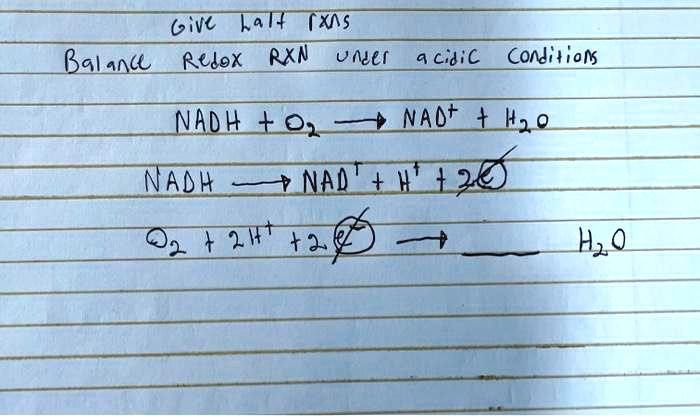 Give half rxns
Balance Redox RXN under acidic Conditions
NADH + O₂ → NAD⁺ + H₂O
NADH → NAD⁺ + H⁺ + 2e⁻
O₂ + 2H⁺ + 2e⁻ → ____ H₂O